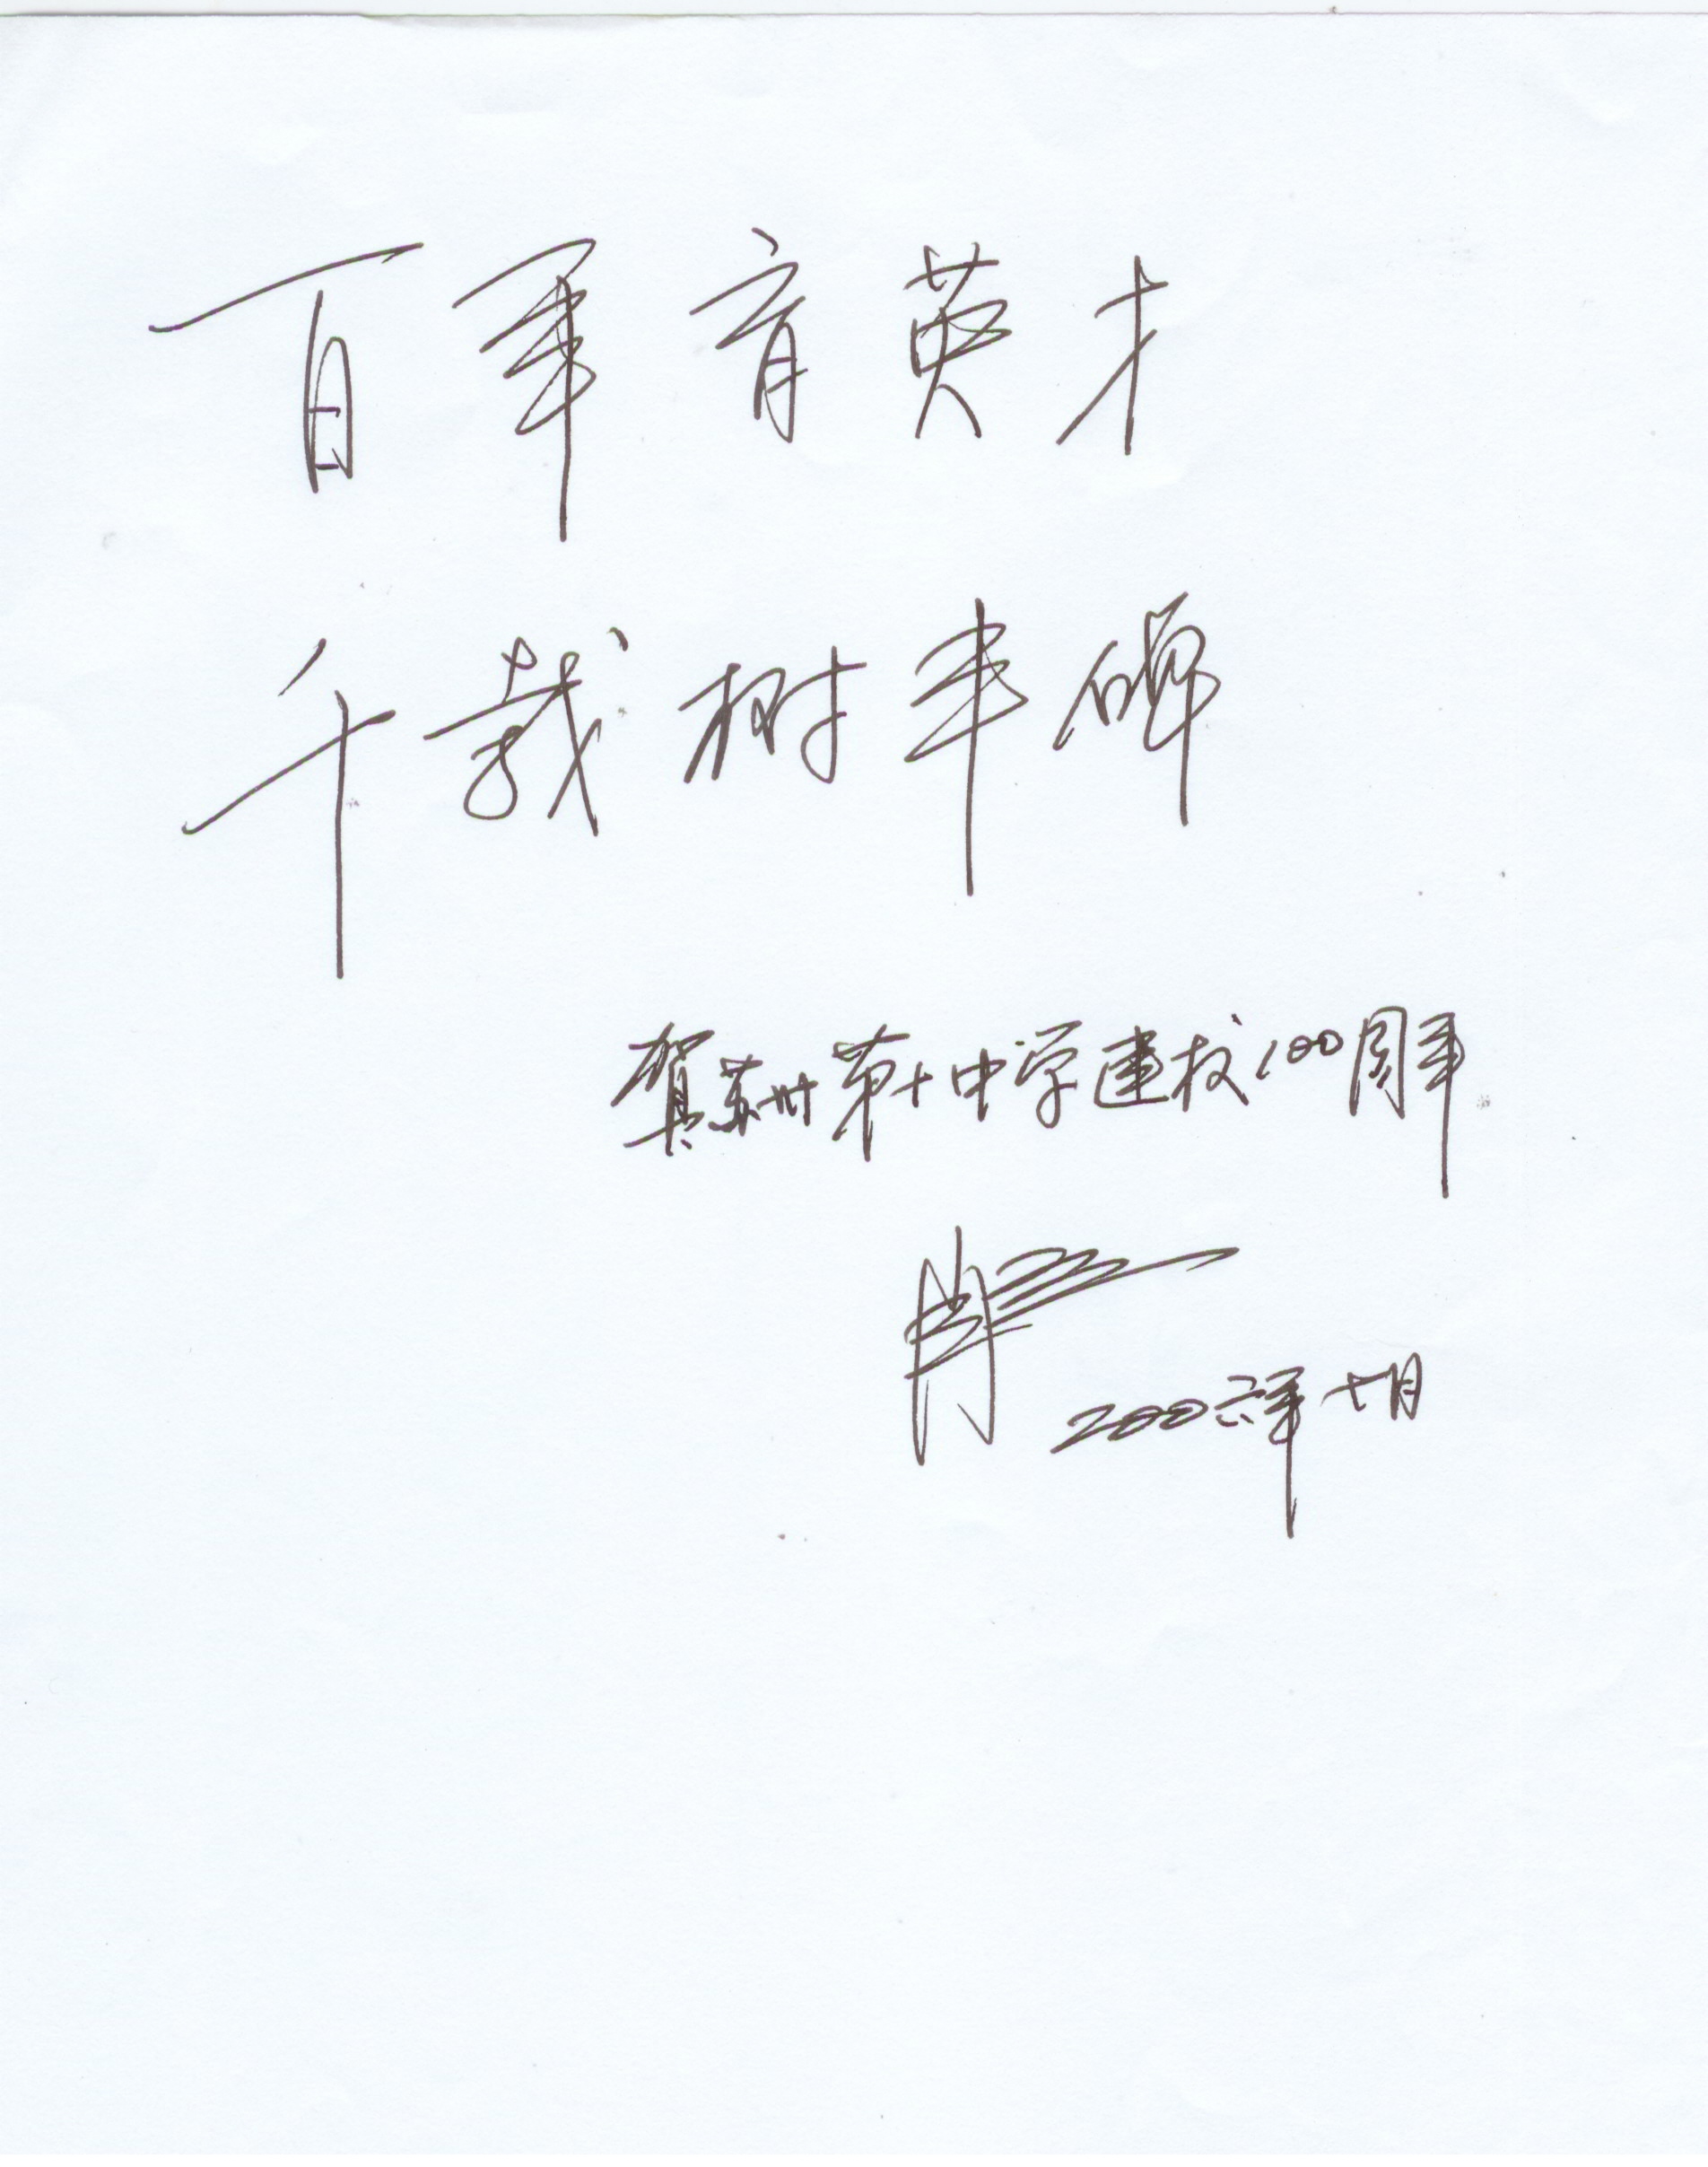 百年育英才
千载树丰碑
贺苏州第十中学建校100周年
200六年七月